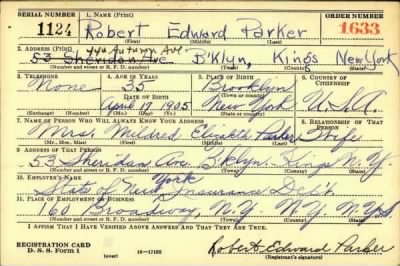 SERIAL NUMBER 1. NAME (Print) ORDER NUMBER
1124 Robert Edward Parker 1633
(First) (Middle) (Last)
2. ADDRESS (Print) 444 Autumn Ave.
53 Sheridan Ave B'Klyn, Kings New York
(Number and street or R. F. D. number) (Town) (County) (State)
3. TELEPHONE 4. AGE IN YEARS 5. PLACE OF BIRTH 6. COUNTRY OF CITIZENSHIP
None 35 Brooklyn
DATE OF BIRTH (Town or county)
April 17 1905 New York U.S.A.
(Exchange) (Number) (Mo.) (Day) (Yr.) (State or country)
7. NAME OF PERSON WHO WILL ALWAYS KNOW YOUR ADDRESS 8. RELATIONSHIP OF THAT PERSON
Mrs. Mildred Elizabeth Parker Wife
(Mr., Mrs., Miss) (First) (Middle) (Last)
9. ADDRESS OF THAT PERSON
53 Sheridan Ave. Bklyn. Kings N.Y.
(Number and street or R. F. D. number) (Town) (County) (State)
10. EMPLOYER'S NAME
State of New York Insurance Dep't.
11. PLACE OF EMPLOYMENT OR BUSINESS
160 Broadway, N.Y. N.Y. N.Y.S
(Number and street or R. F. D. number) (Town) (County) (State)
I AFFIRM THAT I HAVE VERIFIED ABOVE ANSWERS AND THAT THEY ARE TRUE.
REGISTRATION CARD
D. S. S. Form 1 (over) 16—17105 Robert Edward Parker
(Registrant's signature)